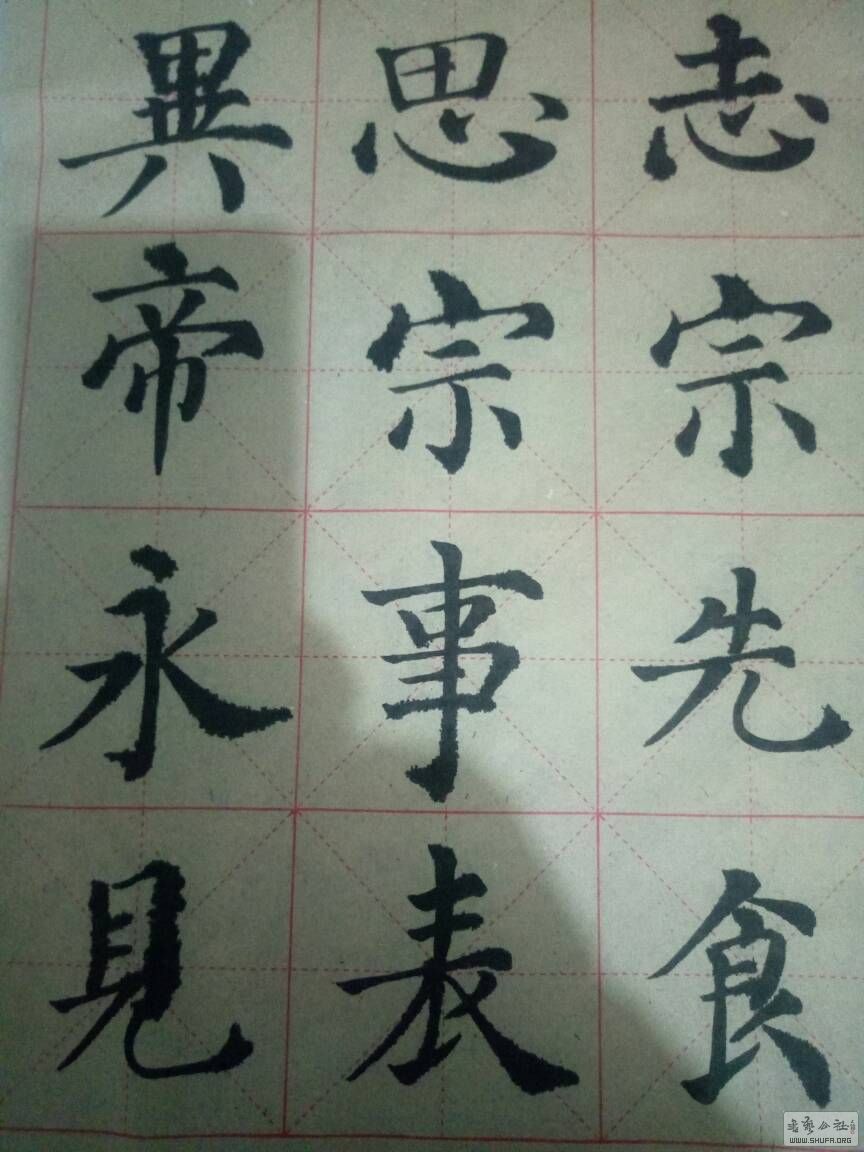 志宗先食
思宗事表
異帝永見
書藝公社
WWW.SHUFA.ORG